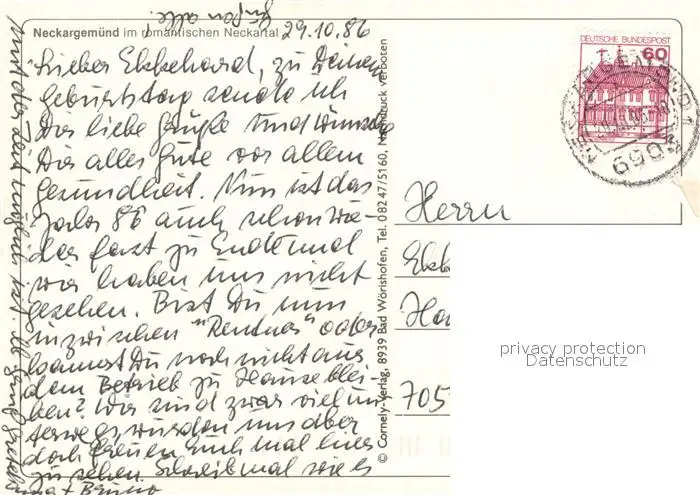 Neckargemünd im romantischen Neckartal 29.10.86
Lieber Ekkehard, zu Deinem
Geburtstag sende ich
Dir liebe Grüße und wünsche
Dir alles Gute vor allem
Gesundheit. Nun ist das
Jahr 86 auch schon wie-
der fast zu Ende und
wir haben uns nicht
gesehen. Bist Du nun
inzwischen "Rentner" oder
kannst Du noch nicht aus
dem Betrieb zu Hause blei-
ben? Wir sind zwar viel un-
terwegs, würden uns aber
doch freuen Euch mal hier
zu sehen. Schreib mal wie es
+ Bruno
© Cornely-Verlag, 8939 Bad Wörishofen, Tel. 08247/5160, Nachdruck verboten
DEUTSCHE BUNDESPOST
60
6903
Herrn
Ekk
705
privacy protection
Datenschutz